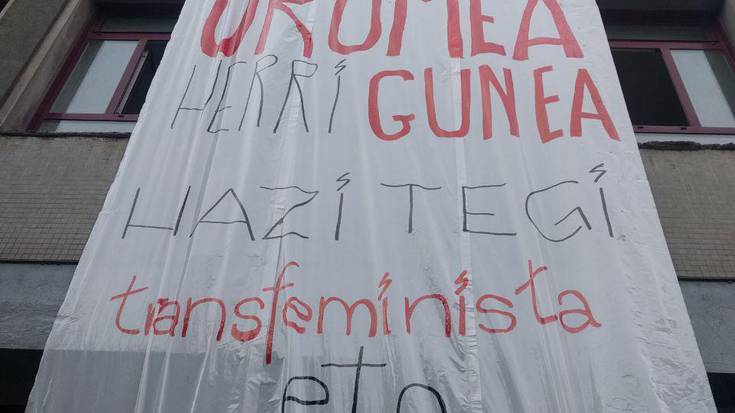 URUMEA
HERRI GUNEA
HAZITEGI
transfeminista
eta